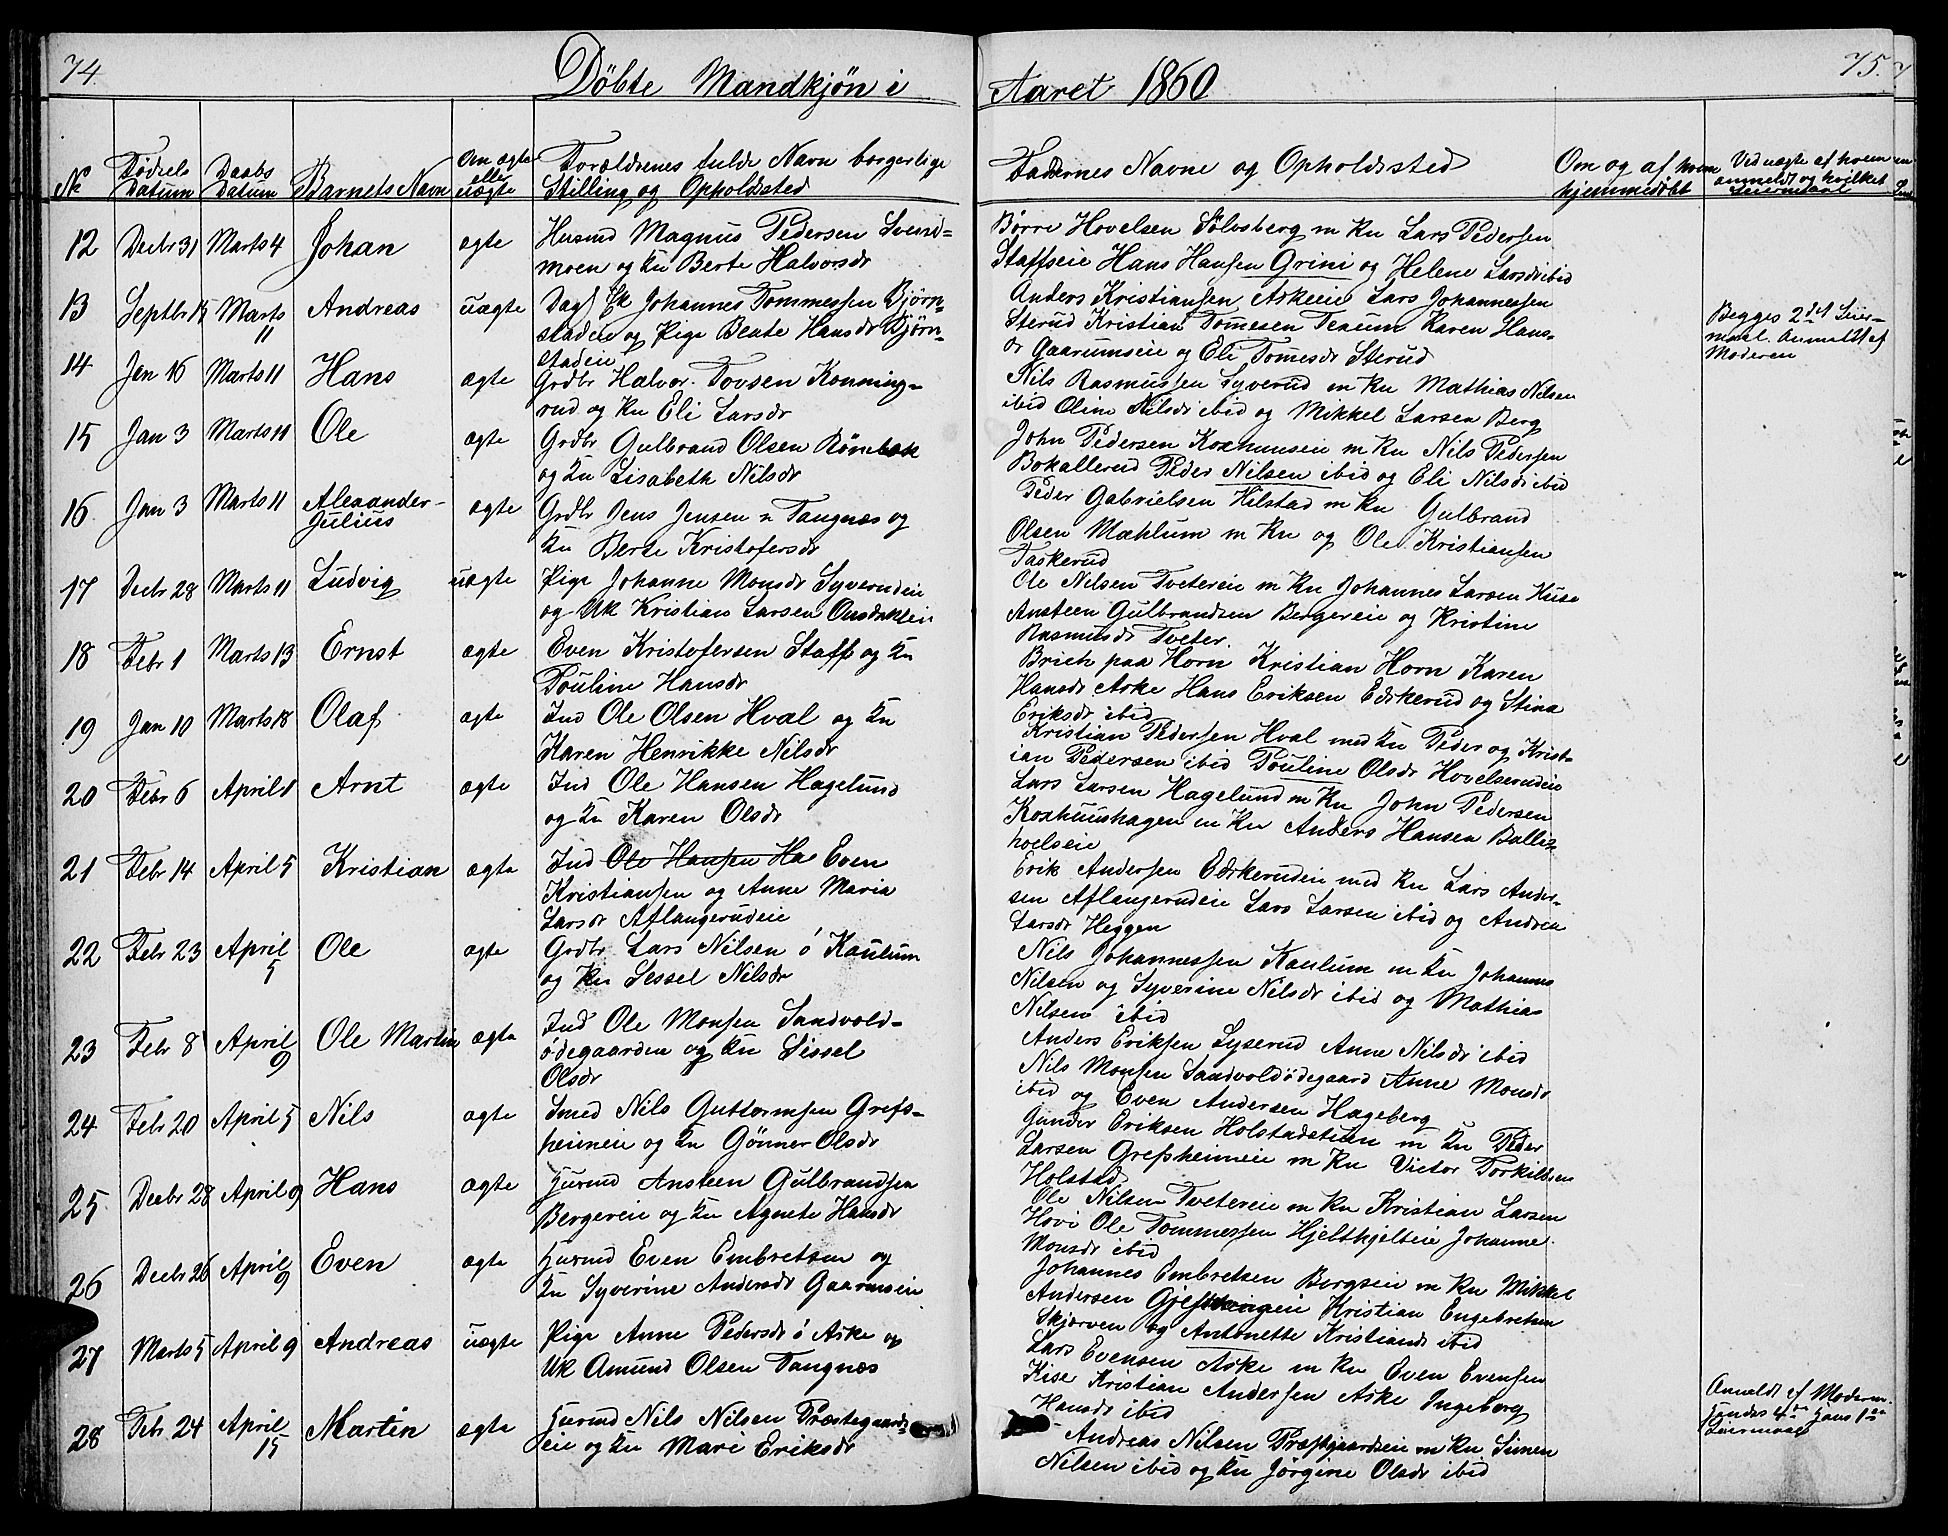 74.
Døbte Mandkjøn i
Aaret 1860
75.
No
Fødsels Datum
Daabs Datum
Barnets Navn
Om ægte eller uægte
Forældrenes fulde Navn borgerlige
Stilling og Opholdssted
Faddernes Navne og Opholdssted
Om og af hvem
hjemmedøbt
Ved uægte af hvem
anmeldt og hvilket
Leiermaal
12 Decbr 31 Marts 4 Johan ægte Husmd Magnus Pedersen Svend=
moen og Ku Berte Halvorsdr
Børre Hovelsen Sølvsberg m Ku Lars Pedersen
Staffseie Hans Hansen Grini og Helene Larsdr ibid
13 Septbr 15 Marts 11 Andreas uægte Dags Johannes Tommessen Bjørn=
stadeie og Pige Beate Hansdr Bjørn=
stadeie
Anders Kristiansen Askeeie Lars Johannessen
Sterud Kristian Tomesen Teaum Karen Hans=
dr Gaarumseie og Eli Tomesdr Sterud
Begges 2det Leier=
maal. Anmeldt af
Moderen
14 Jan 16 Marts 11 Hans ægte Grdbr Halvor Tovsen Konning=
rud og Ku Eli Larsdr
Nils Rasmussen Syverud m Ku Mathias Nilsen
ibid Oline Nilsdr ibid og Mikkel Larsen Berg
15 Jan 3 Marts 11 Ole ægte Grdbr Gulbrand Olsen Rønebæk
og Ku Lisabeth Nilsdr
John Pedersen Koxhuuseie m Ku Nils Pedersen
Bokallerud Peder Nilsen ibid og Eli Nilsdr ibid
16 Jan 3 Marts 11 Alexander
Julius ægte Grdbr Jens Jensen n Tangnæs og
Ku Berte Kristofersdr
Peder Gabrielsen Hilstad m Ku Gulbrand
Olsen Mæhlum m Ku og Ole Kristiansen
Taskerud
17 Decbr 28 Marts 11 Ludvig uægte Pige Johanne Monsdr Syverudeie
og Uk Kristian Larsen
Ole Nilsen Tvetereie m Ku Johannes Larsen Huse
Ansteen Gulbrandsen Bergereie og Kristine
Rasmusdr Tveter.
18 Febr 1 Marts 13 Ernst ægte Even Kristofersen Staff og Ku
Pouline Hansdr
Brich paa Horn Kristian Horn Karen
Hansdr Aske Hans Eriksen Edskerud og Stina
Eriksdr ibid
19 Jan 10 Marts 18 Olaf ægte Ind Ole Olsen Hval og Ku
Karen Henrikke Nilsdr
Kristian Pedersen Hval med Ku Peder og Krist=
ian Pedersen ibid Pouline Olsdr Hovelserudeie
20 Febr 6 April 1 Arnt ægte Ind Ole Hansen Hagelund
og Ku Karen Olsdr
Lars Larsen Hagelund m Ku John Pedersen
Koxhuushagen m Ku Anders Hansen Balliz=
hoelseie
21 Febr 14 April 5 Kristian ægte Ind Ole Hansen Ha Even
Kristiansen og Anne Maria
Larsdr Aflangerudeie
Erik Andersen Edskerudeie med Ku Lars Ander=
sen Aflangerudeie Lars Larsen ibid og Andrea
Larsdr Heggen
22 Febr 23 April 5 Ole ægte Grdbr Lars Nilsen ó Kaulum
og Ku Sessel Nilsdr
Nils Johannessen Kaulum m Ku Johannes
Nilsen og Syverine Nilsdr ibid og Mathias
Nilsen ibid
23 Febr 8 April 9 Ole Martin ægte Ind Ole Monsen Sandvold=
ødegaarden og Ku Sissel
Olsdr
Anders Eriksen Lyserud Anne Nilsdr ibid
Nils Monsen Sandvoldødegaard Anne Monsdr
ibid og Even Andersen Hageberg
24 Febr 20 April 5 Nils ægte Smed Nils Guttormsen Grefs=
heimeie og Ku Gønner Olsdr
Gunder Eriksen Holstadstuen m Ku Peder
Larsen Grefsheimeie m Ku Victor Torkildsen
Holstad
25 Decbr 28 April 9 Hans ægte Husmd Ansteen Gulbrandsen
Bergereie og Ku Agnete Hansdr
Ole Nilsen Tvetereie m Ku Kristian Larsen
Hovi Ole Tommessen Hjeltkjelteie Johanne
Monsdr ibid
26 Decbr 26 April 9 Even ægte Husmd Even Embretsen og
Ku Syverine Andersdr Gaarumseie
Johannes Embretsen Borgseie m Ku Mikkel
Andersen Kristian Engebretsen
Skjørven og Antonette Kristiansdr ibid
27 Marts 5 April 9 Andreas uægte Pige Anne Pedersdr ó Aske og
Uk Amund Olsen Tangnæs
Lars Evensen Aske m Ku Even Evensen
Kise Kristian Andersen Aske Ingeborg
Hansdr ibid
Anmeldt af Moderen.
Hendes 4de Hans 1ste
Leiermaal
28 Febr 24 April 15 Martin ægte Husmd Nils Nilsen Præstegaards=
eie og Ku Mari Eriksdr
Andreas Nilsen Præstgaardseie m Ku Simen
Nilsen ibid og Ku Jørgine Olsdr ibid